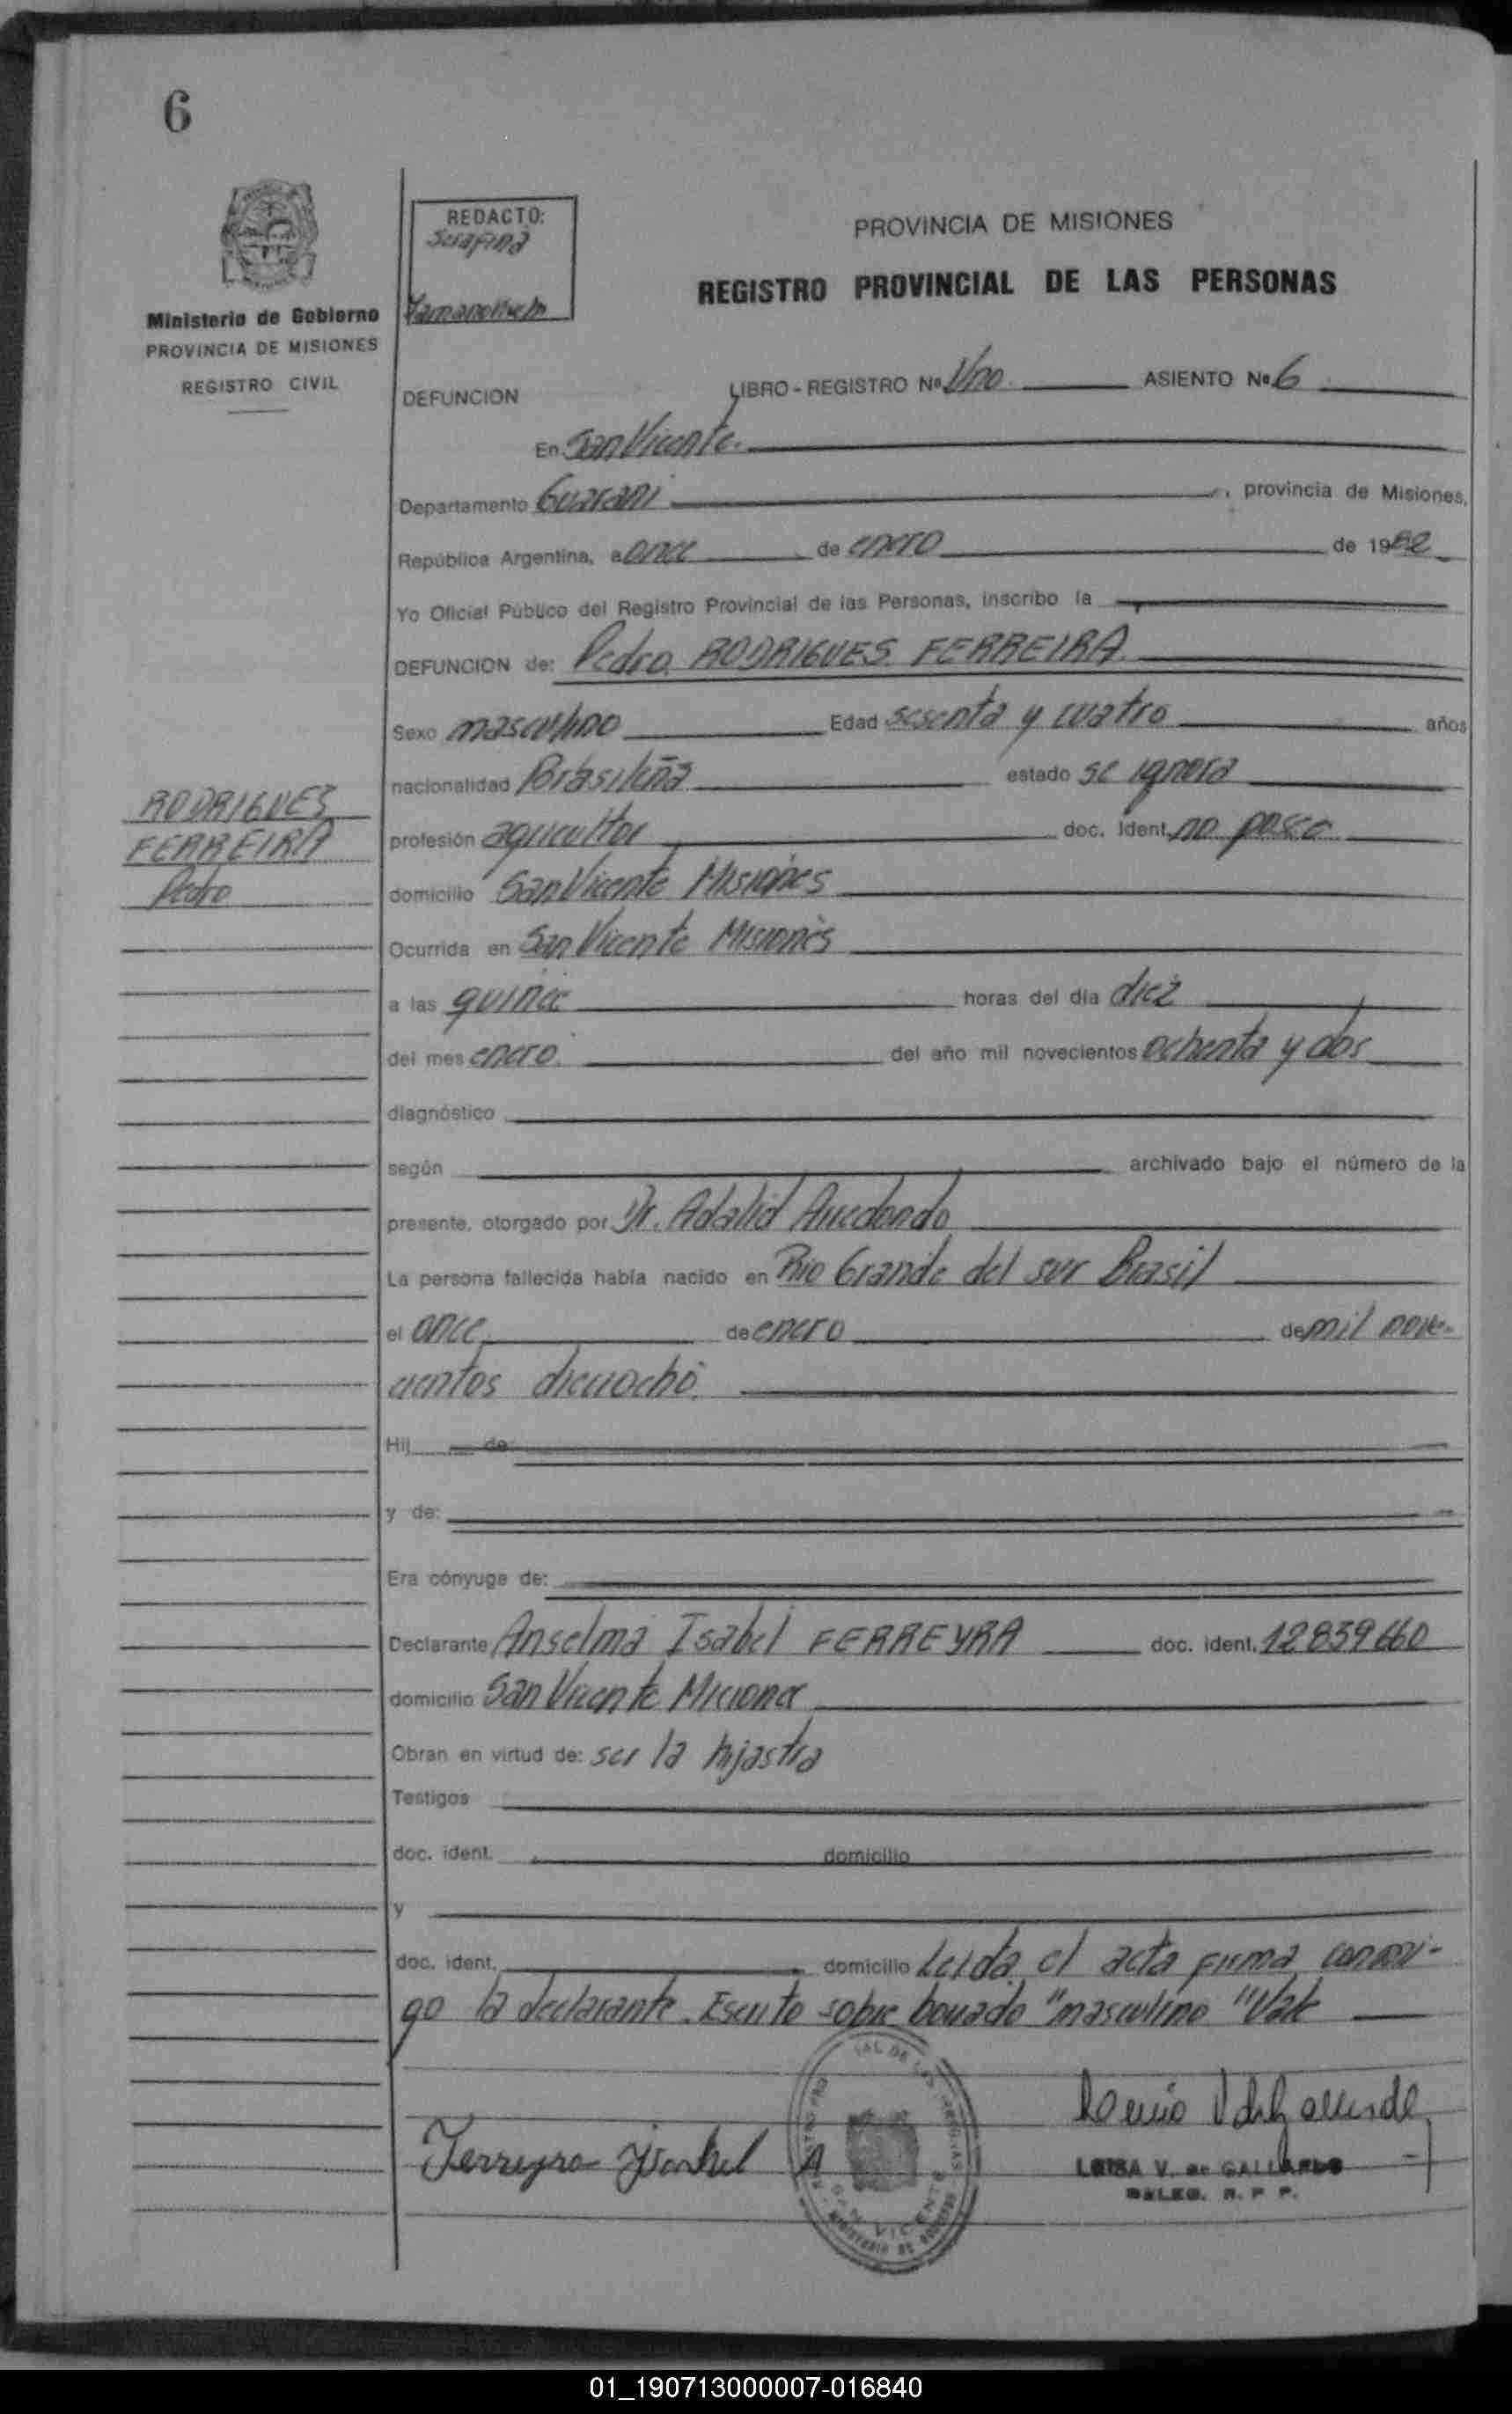 6
REDACTO:
Serafina
PROVINCIA DE MISIONES
REGISTRO PROVINCIAL DE LAS PERSONAS
Ministerio de Gobierno
PROVINCIA DE MISIONES
REGISTRO CIVIL
DEFUNCION LIBRO - REGISTRO Nº Uno. ASIENTO Nº 6
En San Vicente.
Departamento Guarani , provincia de Misiones,
República Argentina, a once de enero de 1982
Yo Oficial Público del Registro Provincial de las Personas, inscribo la
DEFUNCION de: Pedro RODRIGUES FERREIRA
Sexo masculino Edad sesenta y cuatro años
nacionalidad Brasileña estado se ignora
profesión agricultor doc. Ident. no posee
domicilio San Vicente Misiones
Ocurrida en San Vicente Misiones
a las quince horas del día diez
del mes enero. del año mil novecientos ochenta y dos
diagnóstico
según archivado bajo el número de la
presente, otorgado por Dr. Adalid Arredondo
La persona fallecida había nacido en Rio Grande del sur Brasil
el once de enero de mil nove-
cientos dieciocho.
Hij de:
y de:
Era cónyuge de:
Declarante Anselma Isabel FERREYRA doc. ident. 12839660
domicilio San Vicente Misiones
Obran en virtud de: ser la hijastra
Testigos
doc. ident. domicilio
y
doc. ident. domicilio Leida el acta firma conmi-
go la declarante. Escrito sobre borrado "masculino" Vale
RODRIGUES
FERREIRA
Pedro
Ferreyra Isabel A
LUISA V. de GALLARDO
DELEG. R. P. P.
SAN VICENTE
MINISTERIO DE GOBIERNO
01_190713000007-016840